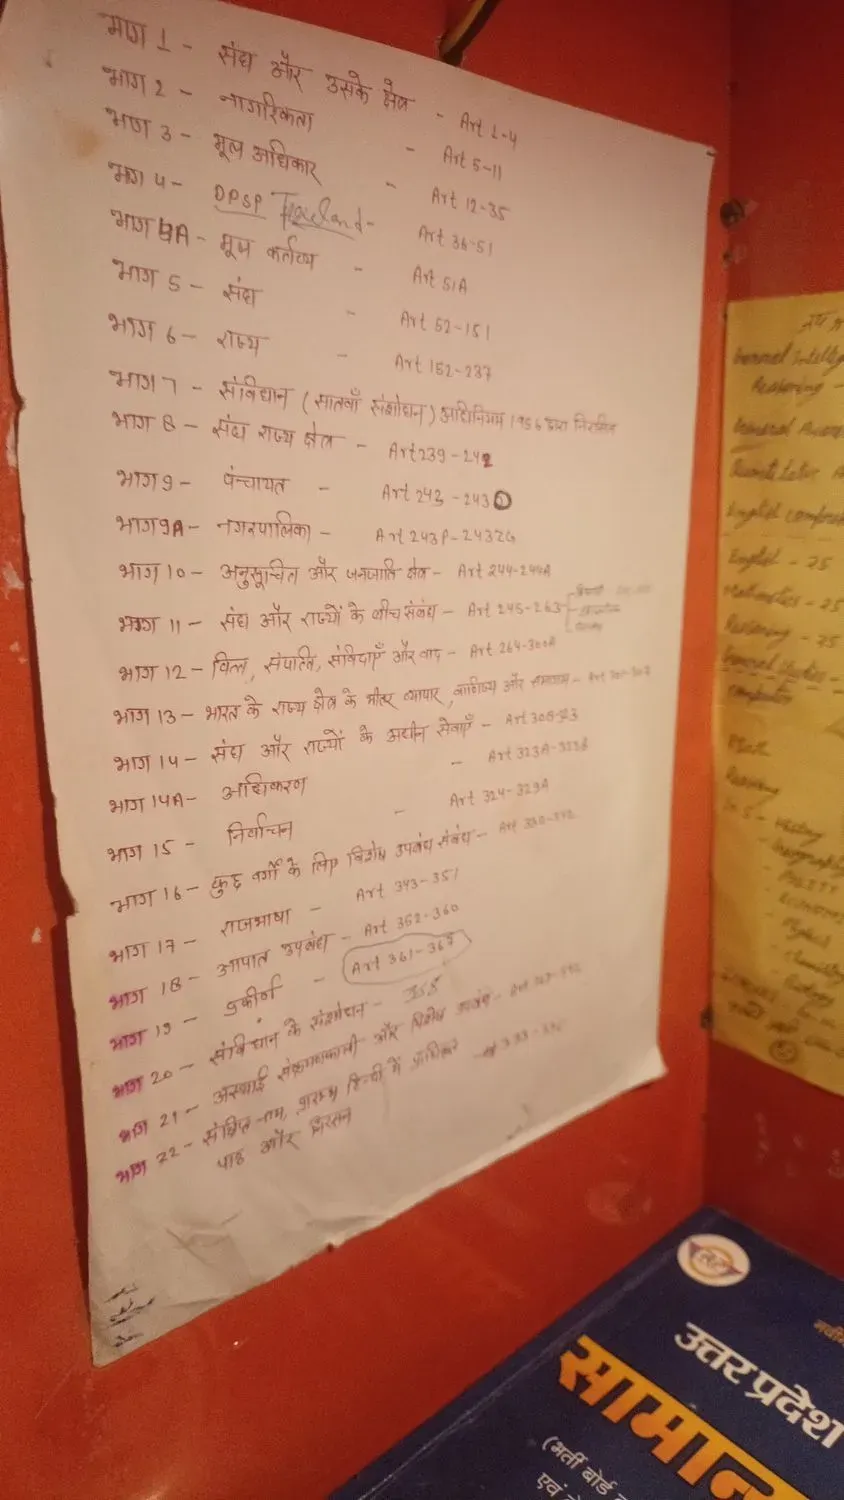 भाग 1 - संघ और उसके क्षेत्र - Art 1-4
भाग 2 - नागरिकता - Art 5-11
भाग 3 - मूल अधिकार - Art 12-35
भाग 4 - DPSP - Art 36-51
भाग 4A - मूल कर्तव्य - Art 51A
भाग 5 - संघ - Art 52-151
भाग 6 - राज्य - Art 152-237
भाग 7 - संविधान (सातवाँ संशोधन) अधिनियम 1956 द्वारा निरसित
भाग 8 - संघ राज्य क्षेत्र - Art 239-242
भाग 9 - पंचायत - Art 243 - 243O
भाग 9A - नगरपालिका - Art 243P-243ZG
भाग 10 - अनुसूचित और जनजाति क्षेत्र - Art 244-244A
भाग 11 - संघ और राज्यों के बीच संबंध - Art 245-263
भाग 12 - वित्त, संपत्ति, संविदाएँ और वाद - Art 264-300A
भाग 13 - भारत के राज्य क्षेत्र के भीतर व्यापार, वाणिज्य और समागम - Art
भाग 14 - संघ और राज्यों के अधीन सेवाएँ - Art 308-323
भाग 14A - अधिकरण - Art 323A-323B
भाग 15 - निर्वाचन - Art 324-329A
भाग 16 - कुछ वर्गों के लिए विशेष उपबंध संबंध - Art 330-342
भाग 17 - राजभाषा - Art 343-351
भाग 18 - आपात उपबंध - Art 352-360
भाग 19 - प्रकीर्ण - Art 361-367
भाग 20 - संविधान के संशोधन - 368
भाग 21 - अस्थाई संक्रमणकाली और विशेष उपबंध - Art
भाग 22 - संक्षिप्त नाम, प्रारम्भ हिन्दी में प्राधिकृत
पाठ और निरसन
General Intellig
Reasoning -
General Awaren
English Compreh
English - 25
Mathematics - 25
Reasoning - 25
General Studies -
Computer
Math
Reasoning
History
Geography
Polity
Economics
Physics
Chemistry
Biology
उत्तर प्रदेश
सामान्
(भर्ती बोर्ड
एवं